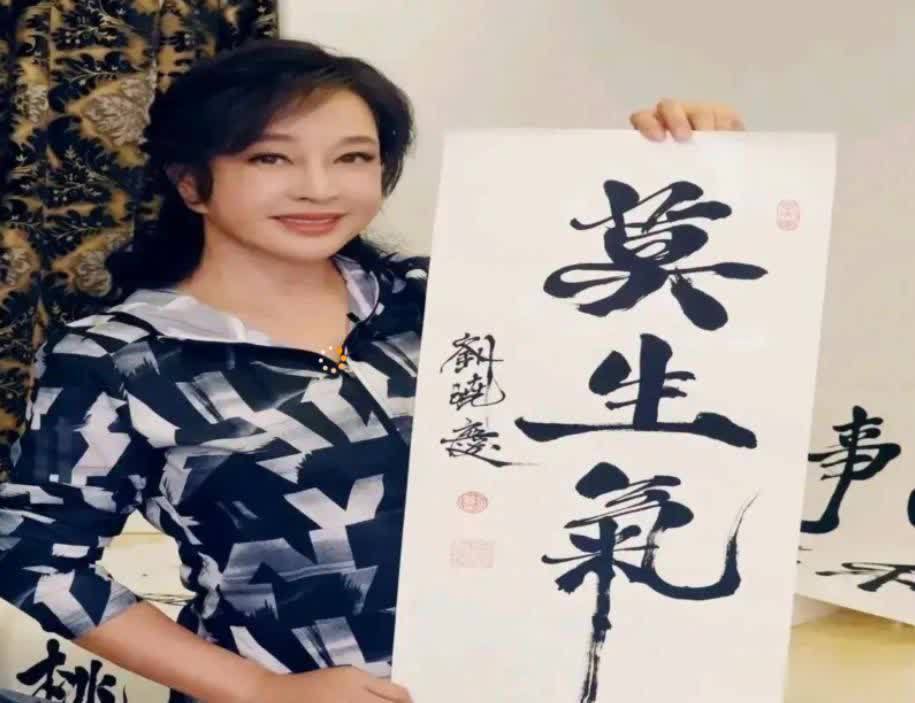 莫生氣
劉曉慶
事
桃